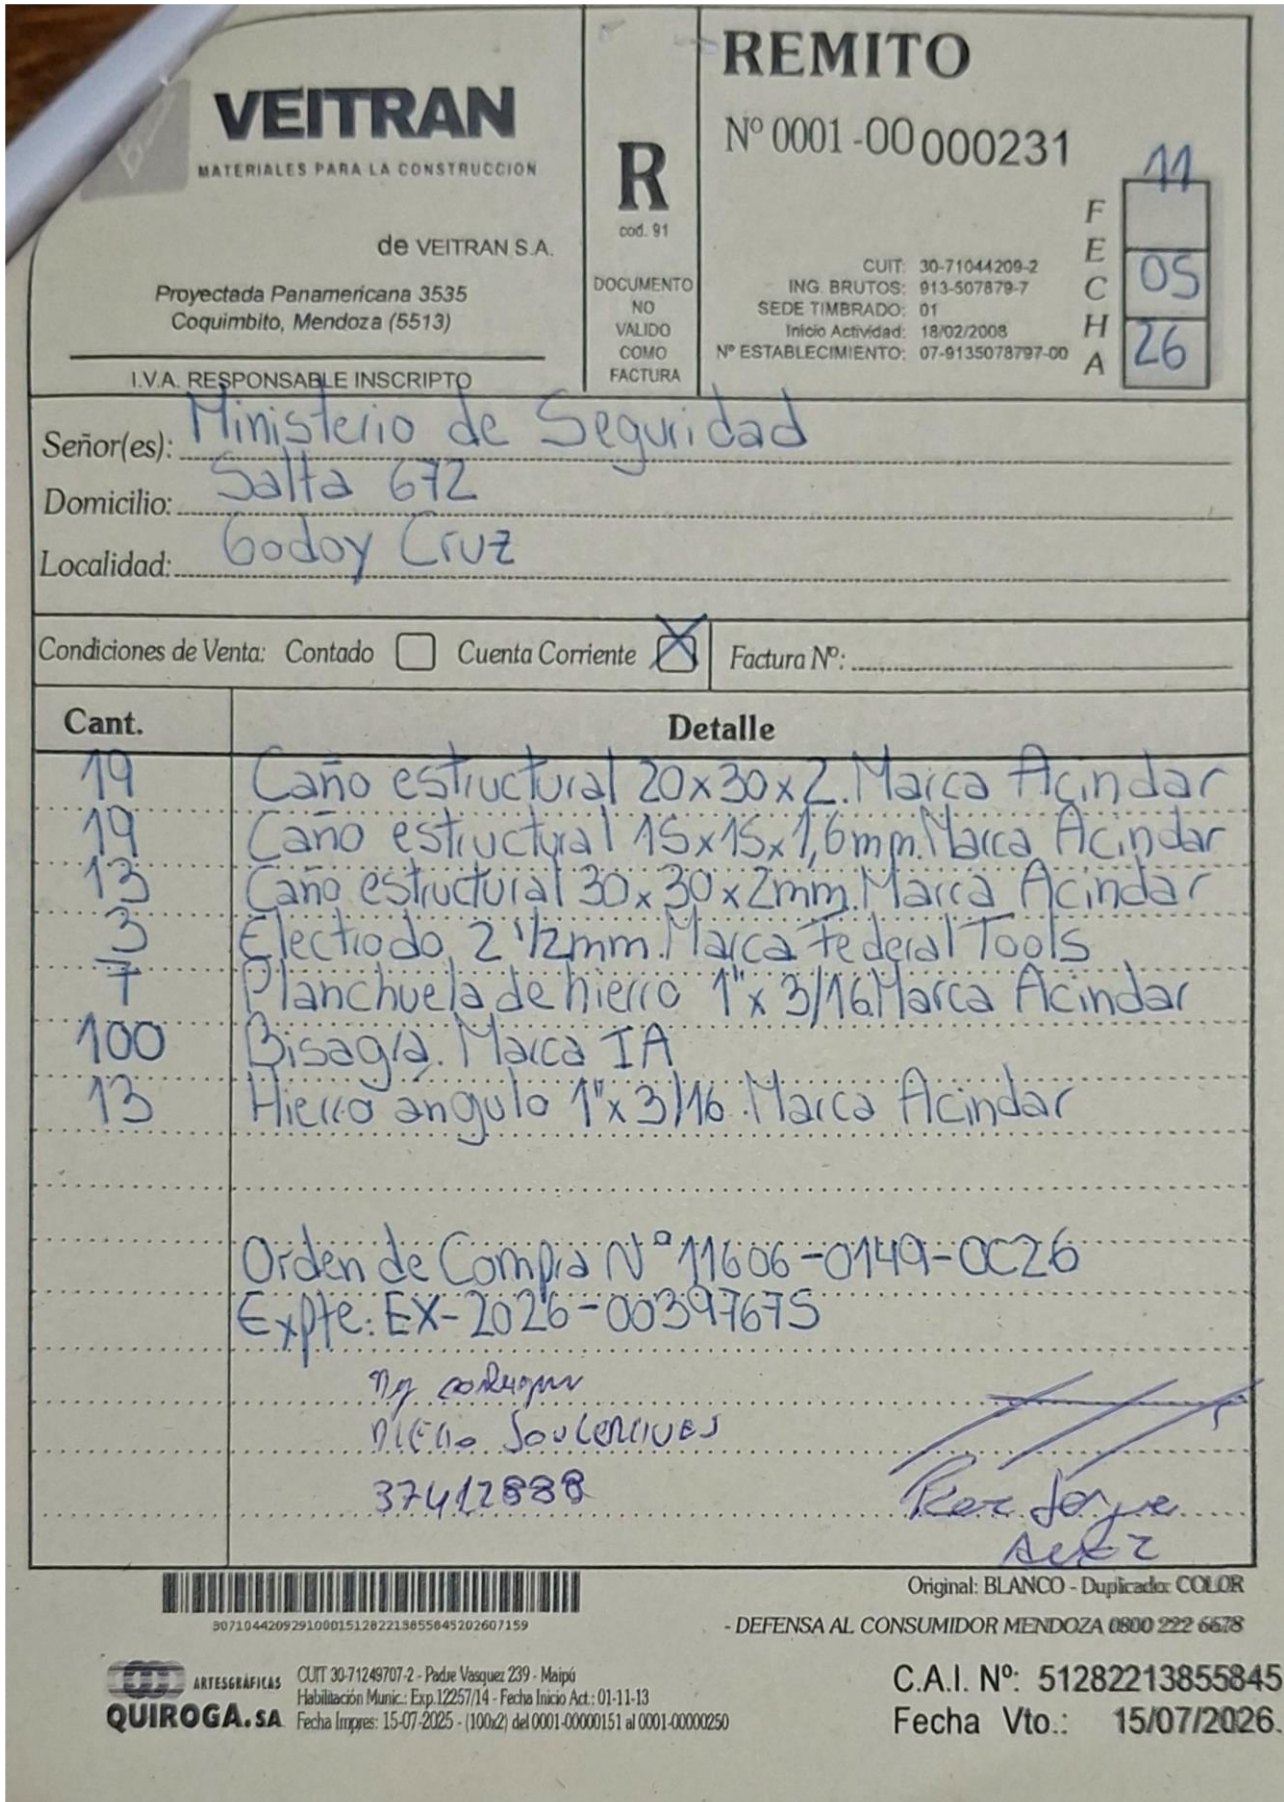 VEITRAN
MATERIALES PARA LA CONSTRUCCION
de VEITRAN S.A.
Proyectada Panamericana 3535
Coquimbito, Mendoza (5513)
I.V.A. RESPONSABLE INSCRIPTO
R
cod. 91
DOCUMENTO
NO
VALIDO
COMO
FACTURA
REMITO
Nº 0001-00000231
CUIT: 30-71044209-2
ING. BRUTOS: 913-507879-7
SEDE TIMBRADO: 01
Inicio Actividad: 18/02/2008
Nº ESTABLECIMIENTO: 07-9135078797-00
FECHA
11
05
26
Señor(es): Ministerio de Seguridad
Domicilio: Salta 672
Localidad: Godoy Cruz
Condiciones de Venta: Contado Cuenta Corriente X Factura Nº:
Cant. Detalle
19 Caño estructural 20x30x2. Marca Acindar
19 Caño estructural 15x15x1,6mm. Marca Acindar
13 Caño estructural 30x30x2mm. Marca Acindar
3 Electrodo 2 1/2mm. Marca Federal Tools
7 Planchuela de hierro 1"x 3/16 Marca Acindar
100 Bisagra. Marca IA
13 Hierro ángulo 1"x3/16. Marca Acindar
Orden de Compra N° 11606-0149-OC26
Expte: EX-2026-00397675
37412888
Jorge
Original: BLANCO - Duplicado: COLOR
3071044209291000151282213855845202607159
- DEFENSA AL CONSUMIDOR MENDOZA 0800 222 6678
ARTESGRÁFICAS
QUIROGA.SA
CUIT 30-71249707-2 - Padre Vasquez 239 - Maipú
Habilitación Munic.: Exp.12257/14 - Fecha Inicio Act.: 01-11-13
Fecha Impres: 15-07-2025 - (100x2) del 0001-00000151 al 0001-00000250
C.A.I. Nº: 51282213855845
Fecha Vto.: 15/07/2026.